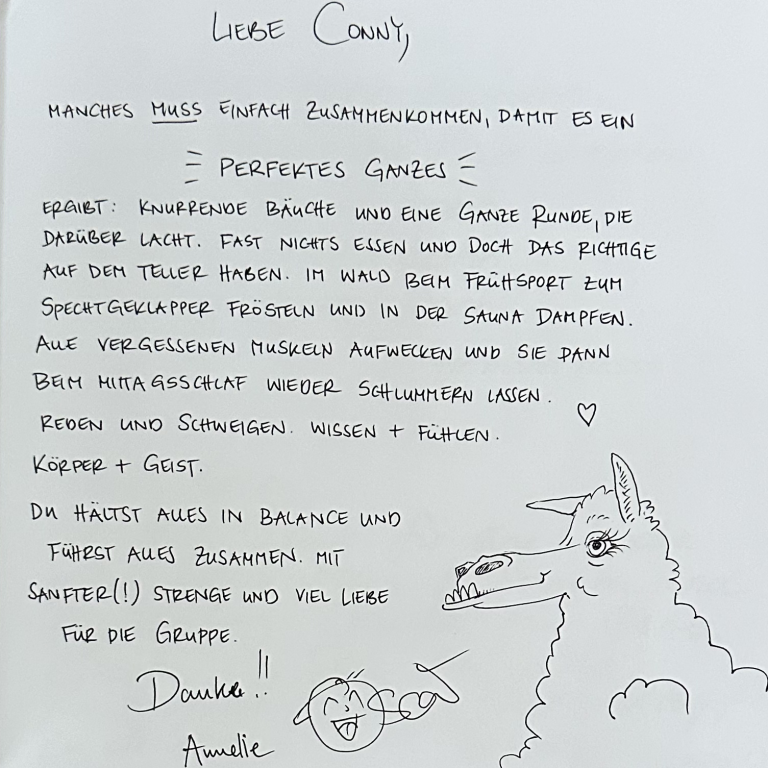 LIEBE CONNY,
MANCHES MUSS EINFACH ZUSAMMENKOMMEN, DAMIT ES EIN
PERFEKTES GANZES
ERGIBT: KNURRENDE BÄUCHE UND EINE GANZE RUNDE, DIE
DARÜBER LACHT. FAST NICHTS ESSEN UND DOCH DAS RICHTIGE
AUF DEM TELLER HABEN. IM WALD BEIM FRÜHSPORT ZUM
SPECHTGEKLAPPER FRÖSTELN UND IN DER SAUNA DAMPFEN.
ALLE VERGESSENEN MUSKELN AUFWECKEN UND SIE DANN
BEIM MITTAGSSCHLAF WIEDER SCHLUMMERN LASSEN.
REDEN UND SCHWEIGEN. WISSEN + FÜHLEN.
KÖRPER + GEIST.
DU HÄLTST ALLES IN BALANCE UND
FÜHRST ALLES ZUSAMMEN. MIT
SANFTER(!) STRENGE UND VIEL LIEBE
FÜR DIE GRUPPE.
Danke!!
Annelie